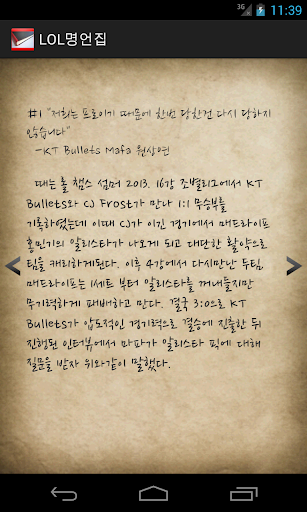 3G 11:39
LOL명언집
#1 "저희는 프로이기 때문에 한번 당한건 다시 당하지
않습니다"
-KT Bullets Mafa 원상연
때는 롤 챔스 섬머 2013. 16강 조별리그에서 KT
Bullets와 CJ Frost가 만나 1:1 무승부를
기록하였는데 이때 CJ가 이긴 경기에서 매드라이프
홍민기의 알리스타가 나오게 되고 대단한 활약으로
팀을 캐리하게된다. 이후 4강에서 다시만난 두팀.
매드라이프는 1세트 부터 알리스타를 꺼내들지만
무기력하게 패배하고 만다. 결국 3:0으로 KT
Bullets가 압도적인 경기력으로 결승에 진출한 뒤
진행된 인터뷰에서 마파가 알리스타 픽에 대해
질문을 받자 위와같이 말했다.